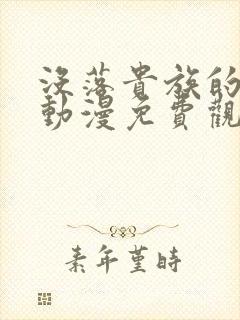 沒落貴族的
動漫免費觀
素年堇時